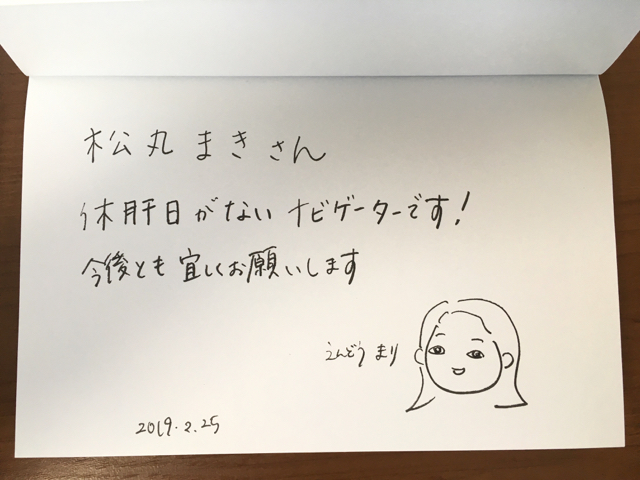 松丸 まき さん
休肝日がない ナビゲーターです!
今後とも 宜しくお願いします
えんどう まり
2019.2.25